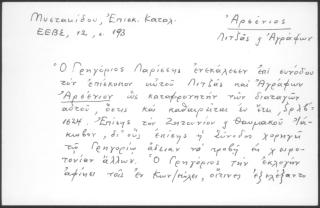 Μυστακίδου, Ἐπισκ. Κατάλ.
ΕΕΒΣ, 12, σ. 193
Ἀρσένιος
Λιτζᾶς ᾗ Ἀγράφων
Ὁ Γρηγόριος Λαρίσσης ἐνεκάλεσεν ἐπὶ συνόδου
τὸν ἐπίσκοπον αὐτοῦ Λιτζᾶς καὶ Ἀγράφων
Ἀρσένιον ὡς καταφρονητὴν τῶν διαταγῶν
αὐτοῦ, ὅστις καὶ καθαιρεῖται ἐν ἔτει ͵ζρλβʹ
1624. Ἐπίσης τὸν Ζητουνίου ᾗ Θαυμακοῦ
Ἰάκωβον, δι' οὓς ἐπίσης ἡ Σύνοδος χορηγεῖ
τῷ Γρηγορίῳ ἄδειαν νὰ προβῇ εἰς χειρο-
τονίαν ἄλλων. Ὁ Γρηγόριος τὴν ἐκλογὴν
ἀφίνει τοῖς ἐν Κων/πόλει, οἵτινες ἐξελέξαντο